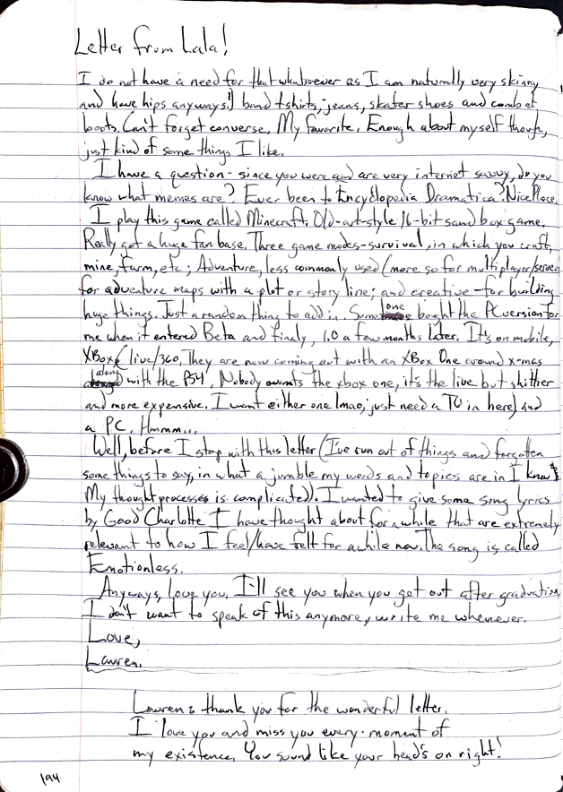 Letter from Lala!
I do not have a need for that whatsoever as I am naturally very skinny
and have hips anyways!) band tshirts, jeans, skater shoes and combat
boots. Can't forget converse, My favorite. Enough about myself though,
just kind of some things I like.
I have a question - since you were and are very internet savvy, do you
know what memes are? Ever been to Encyclopedia Dramatica? Nice Place.
I play this game called Minecraft. Old-art-style 16-bit sand box game.
Really got a huge fan base. Three game modes - survival, in which you craft,
mine, farm, etc; Adventure, less commonly used (more so for multiplayer/servers
for adventure maps with a plot or story line; and creative - for building
huge things. Just a random thing to add in. Someone bought the PC version for
me when it entered Beta and finaly, 1.0 a few months later. It's on mobile,
XBox (live/360. They are now coming out with an XBox One around x-mas
along with the PS4. Nobody wants the xbox one, it's the live but shittier
and more expensive. I want either one lmao, just need a TV in here) and
a PC. Hmmm...
Well, before I stop with this letter (I've run out of things and forgotten
some things to say, in what a jumble my words and topics are in I know!
My thought processes is complicated). I wanted to give some song lyrics
by Good Charlotte I have thought about for a while that are extremely
relevant to how I feel/have felt for a while now. The song is called
Emotionless.
Anyways, love you. I'll see you when you get out after graduation
I don't want to speak of this anymore, write me whenever.
Love,
Lauren.
Lauren: thank you for the wonderful letter.
I love you and miss you every moment of
my existence. You sound like your head's on right!
194